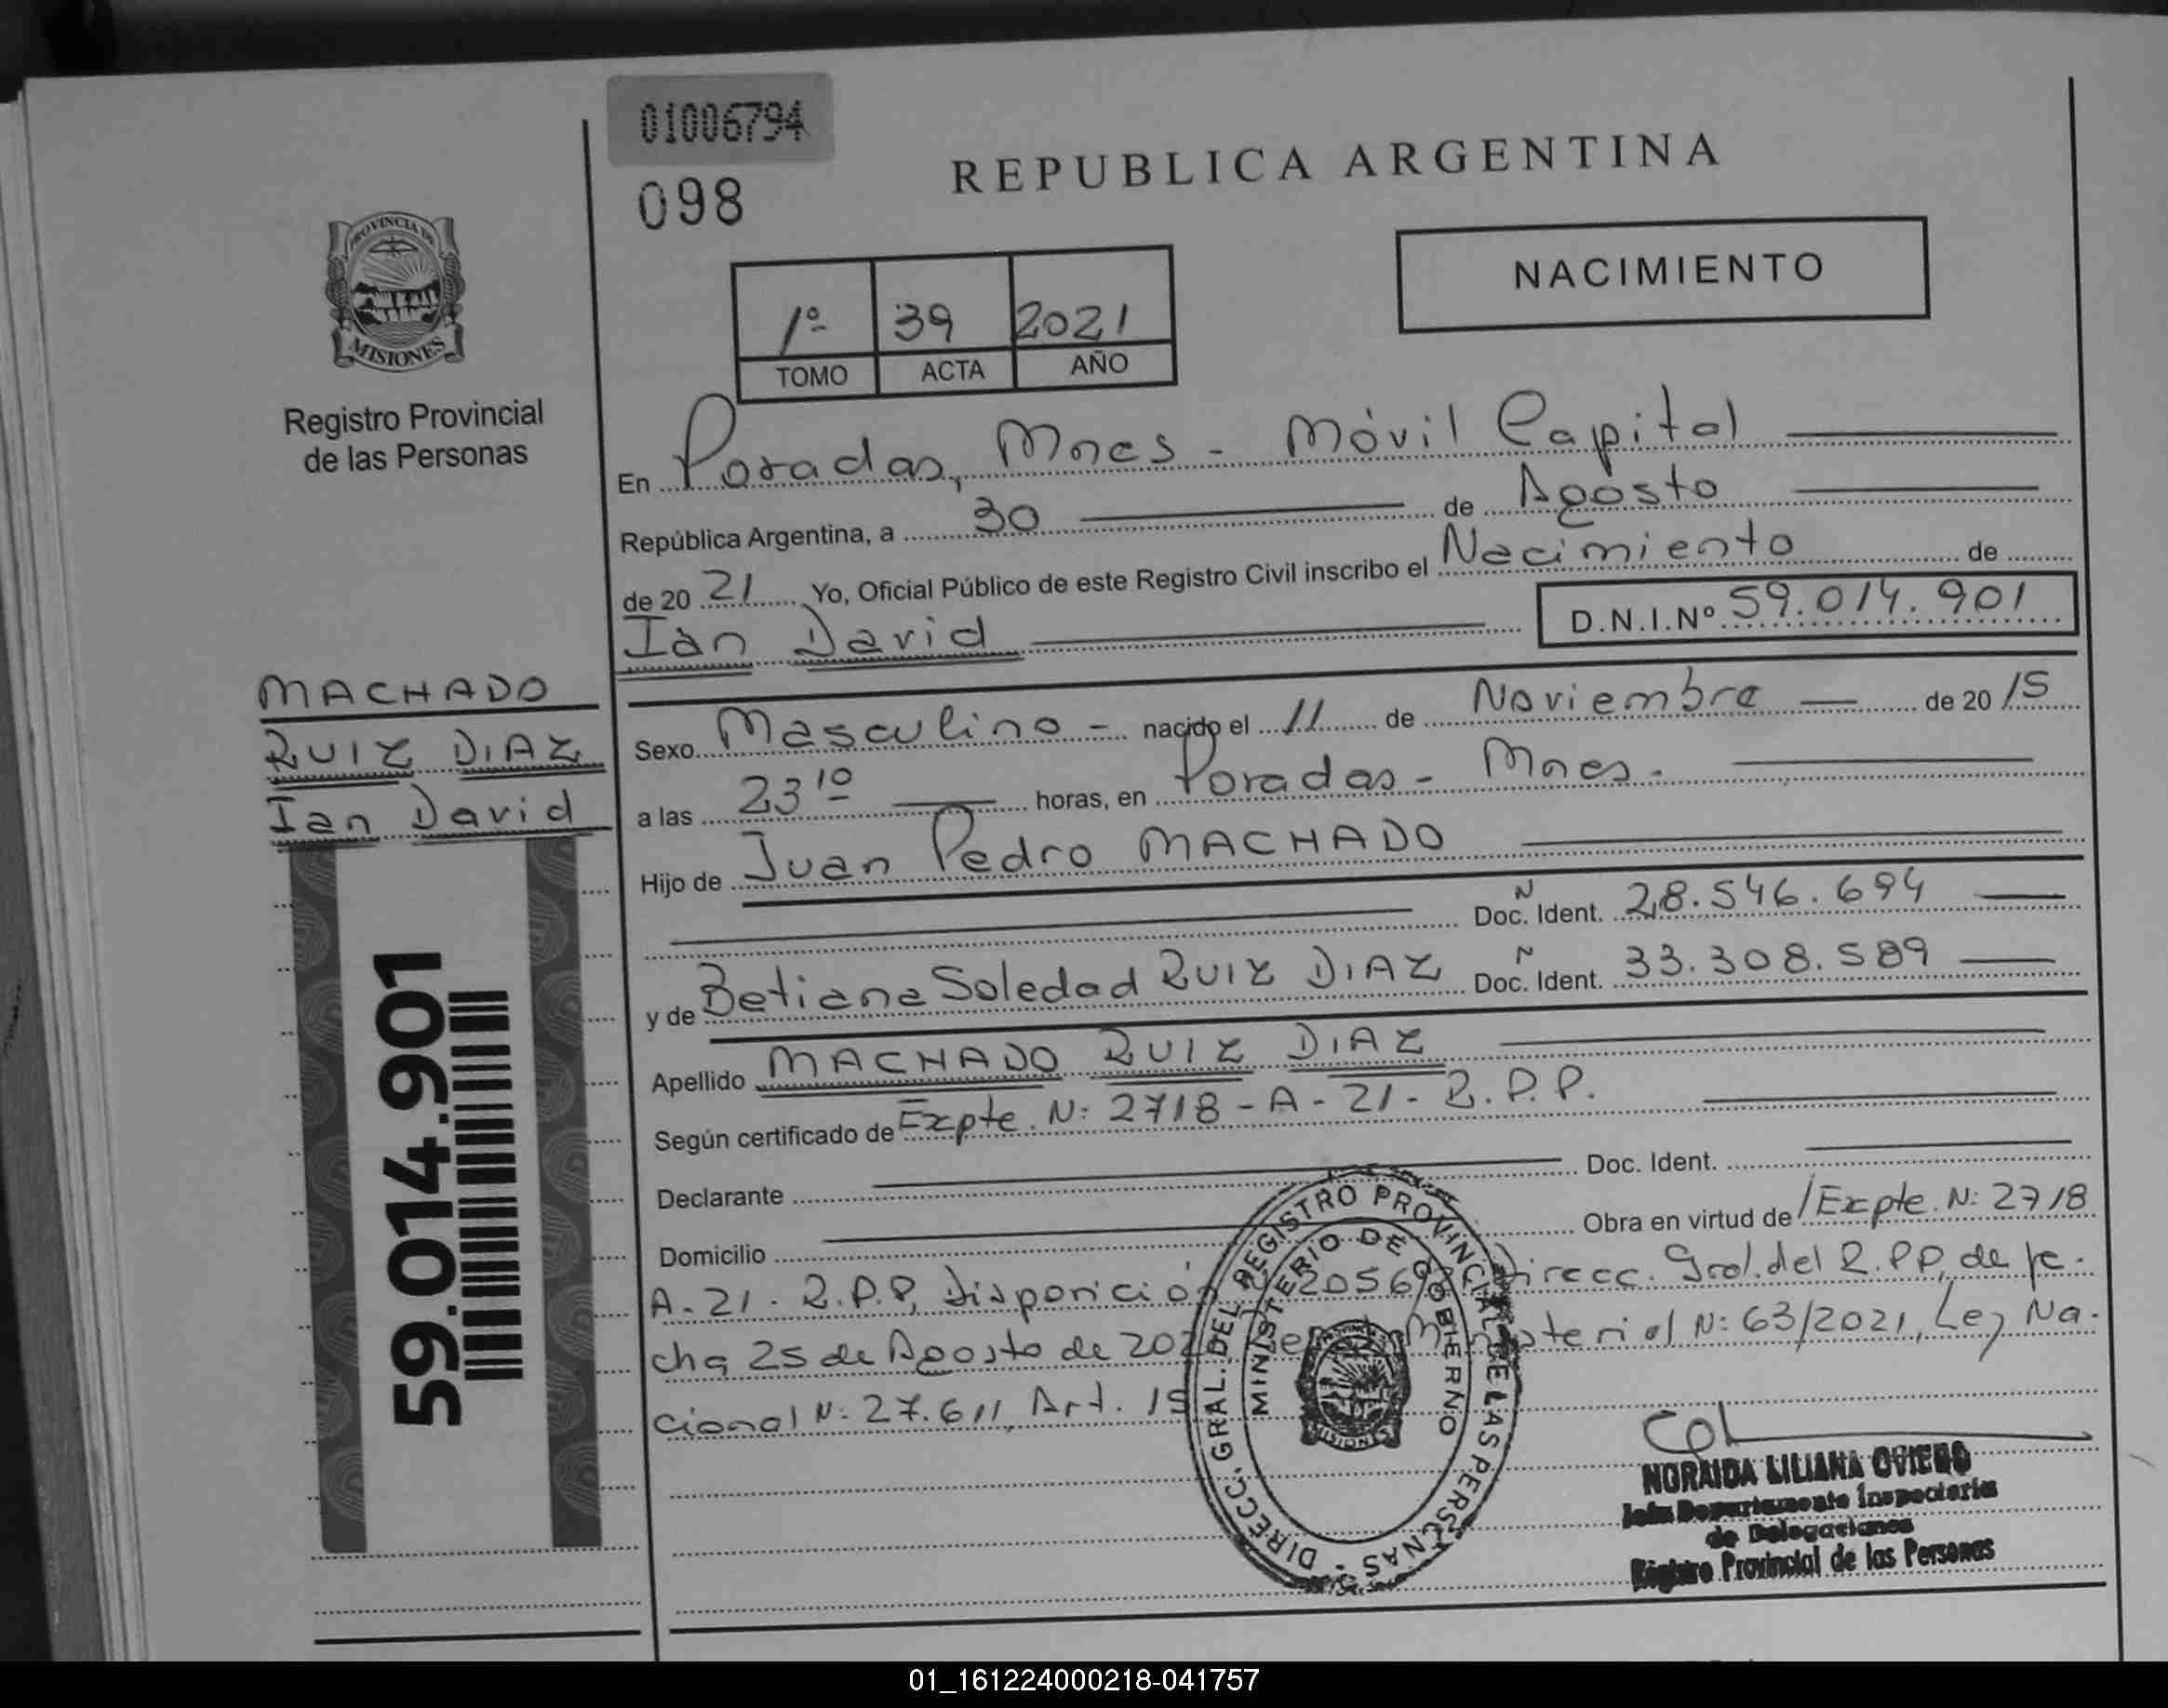 01006794
098
REPUBLICA ARGENTINA
NACIMIENTO
1º 39 2021
TOMO ACTA AÑO
PROVINCIA DE
MISIONES
Registro Provincial
de las Personas
En Posadas, Mnes - Móvil Capital
República Argentina, a 30 de Agosto
de 20 21 Yo, Oficial Público de este Registro Civil inscribo el Nacimiento de
Ian David
D.N.I.Nº 59.014.901
MACHADO
RUIZ DIAZ
Ian David
59.014.901
Sexo Masculino - nacido el 11 de Noviembre de 20 15
a las 23 10 horas, en Posadas - Mnes -
Hijo de Juan Pedro MACHADO
N Doc. Ident. 28.546.694
y de Betiana Soledad RUIZ DIAZ N Doc. Ident. 33.308.589
Apellido MACHADO RUIZ DIAZ
Según certificado de Expte. N: 2718 - A - 21 - R.P.P.
Declarante Doc. Ident.
Domicilio Obra en virtud de /Expte. N: 2718
A - 21 - R.P.P, Disposición Direcc. Gral. del R.PP, de fe-
cha 25 de Agosto de N: 63/2021, Ley Na-
cional N: 27.611, Art. 15
DIRECC. GRAL. DEL REGISTRO PROVINCIAL DE LAS PERSONAS
MINISTERIO DE GOBIERNO
MISIONES
NORAIDA LILIANA OVIEDO
Jefa Departamento Inspectoría
de Delegaciones
Registro Provincial de las Personas
01_161224000218-041757